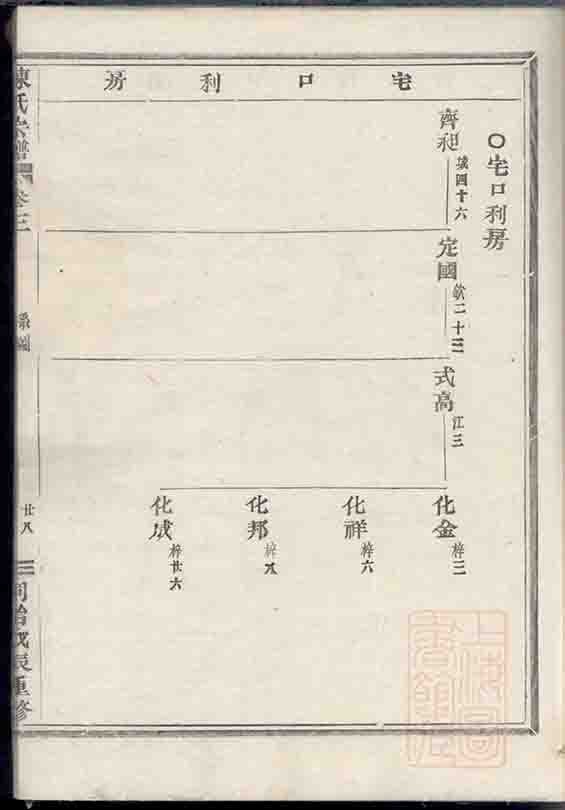 宅口利房
○宅口利房
齊昶 城四十六
定國 欽二十三
式高 江三
化金 梓三
化祥 梓六
化邦 梓八
化成 梓廿六
陳氏宗譜 卷三
系圖
廿八
同治戊辰重修
上海圖書館藏